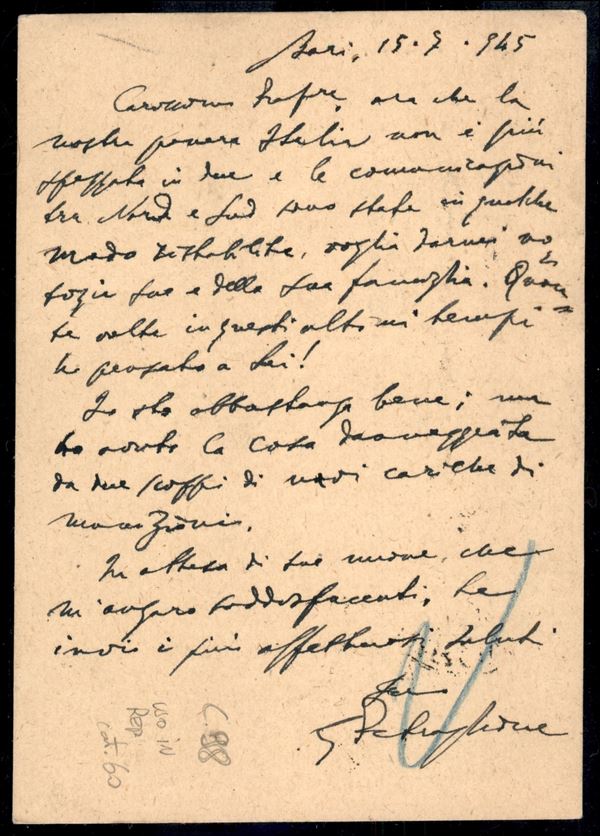 Bari, 15.7.945
Carissimo, ora che la
nostra povera Italia non è più
spezzata in due e le comunicazioni
tra Nord e Sud sono state in qualche
modo ristabilite, voglia darmi no
tizie sue e della sua famiglia. Quan=
te volte in questi ultimi tempi
ho pensato a Lei!
Io sto abbastanza bene; ma
ho avuto la casa danneggiata
da due scoppi di navi cariche di
munizioni.
In attesa di sue nuove, che
m'auguro soddisfacenti, Le
invio i più affettuosi saluti
Suo
G Petraglione
C 98
USO IN
Rep
cat. 60